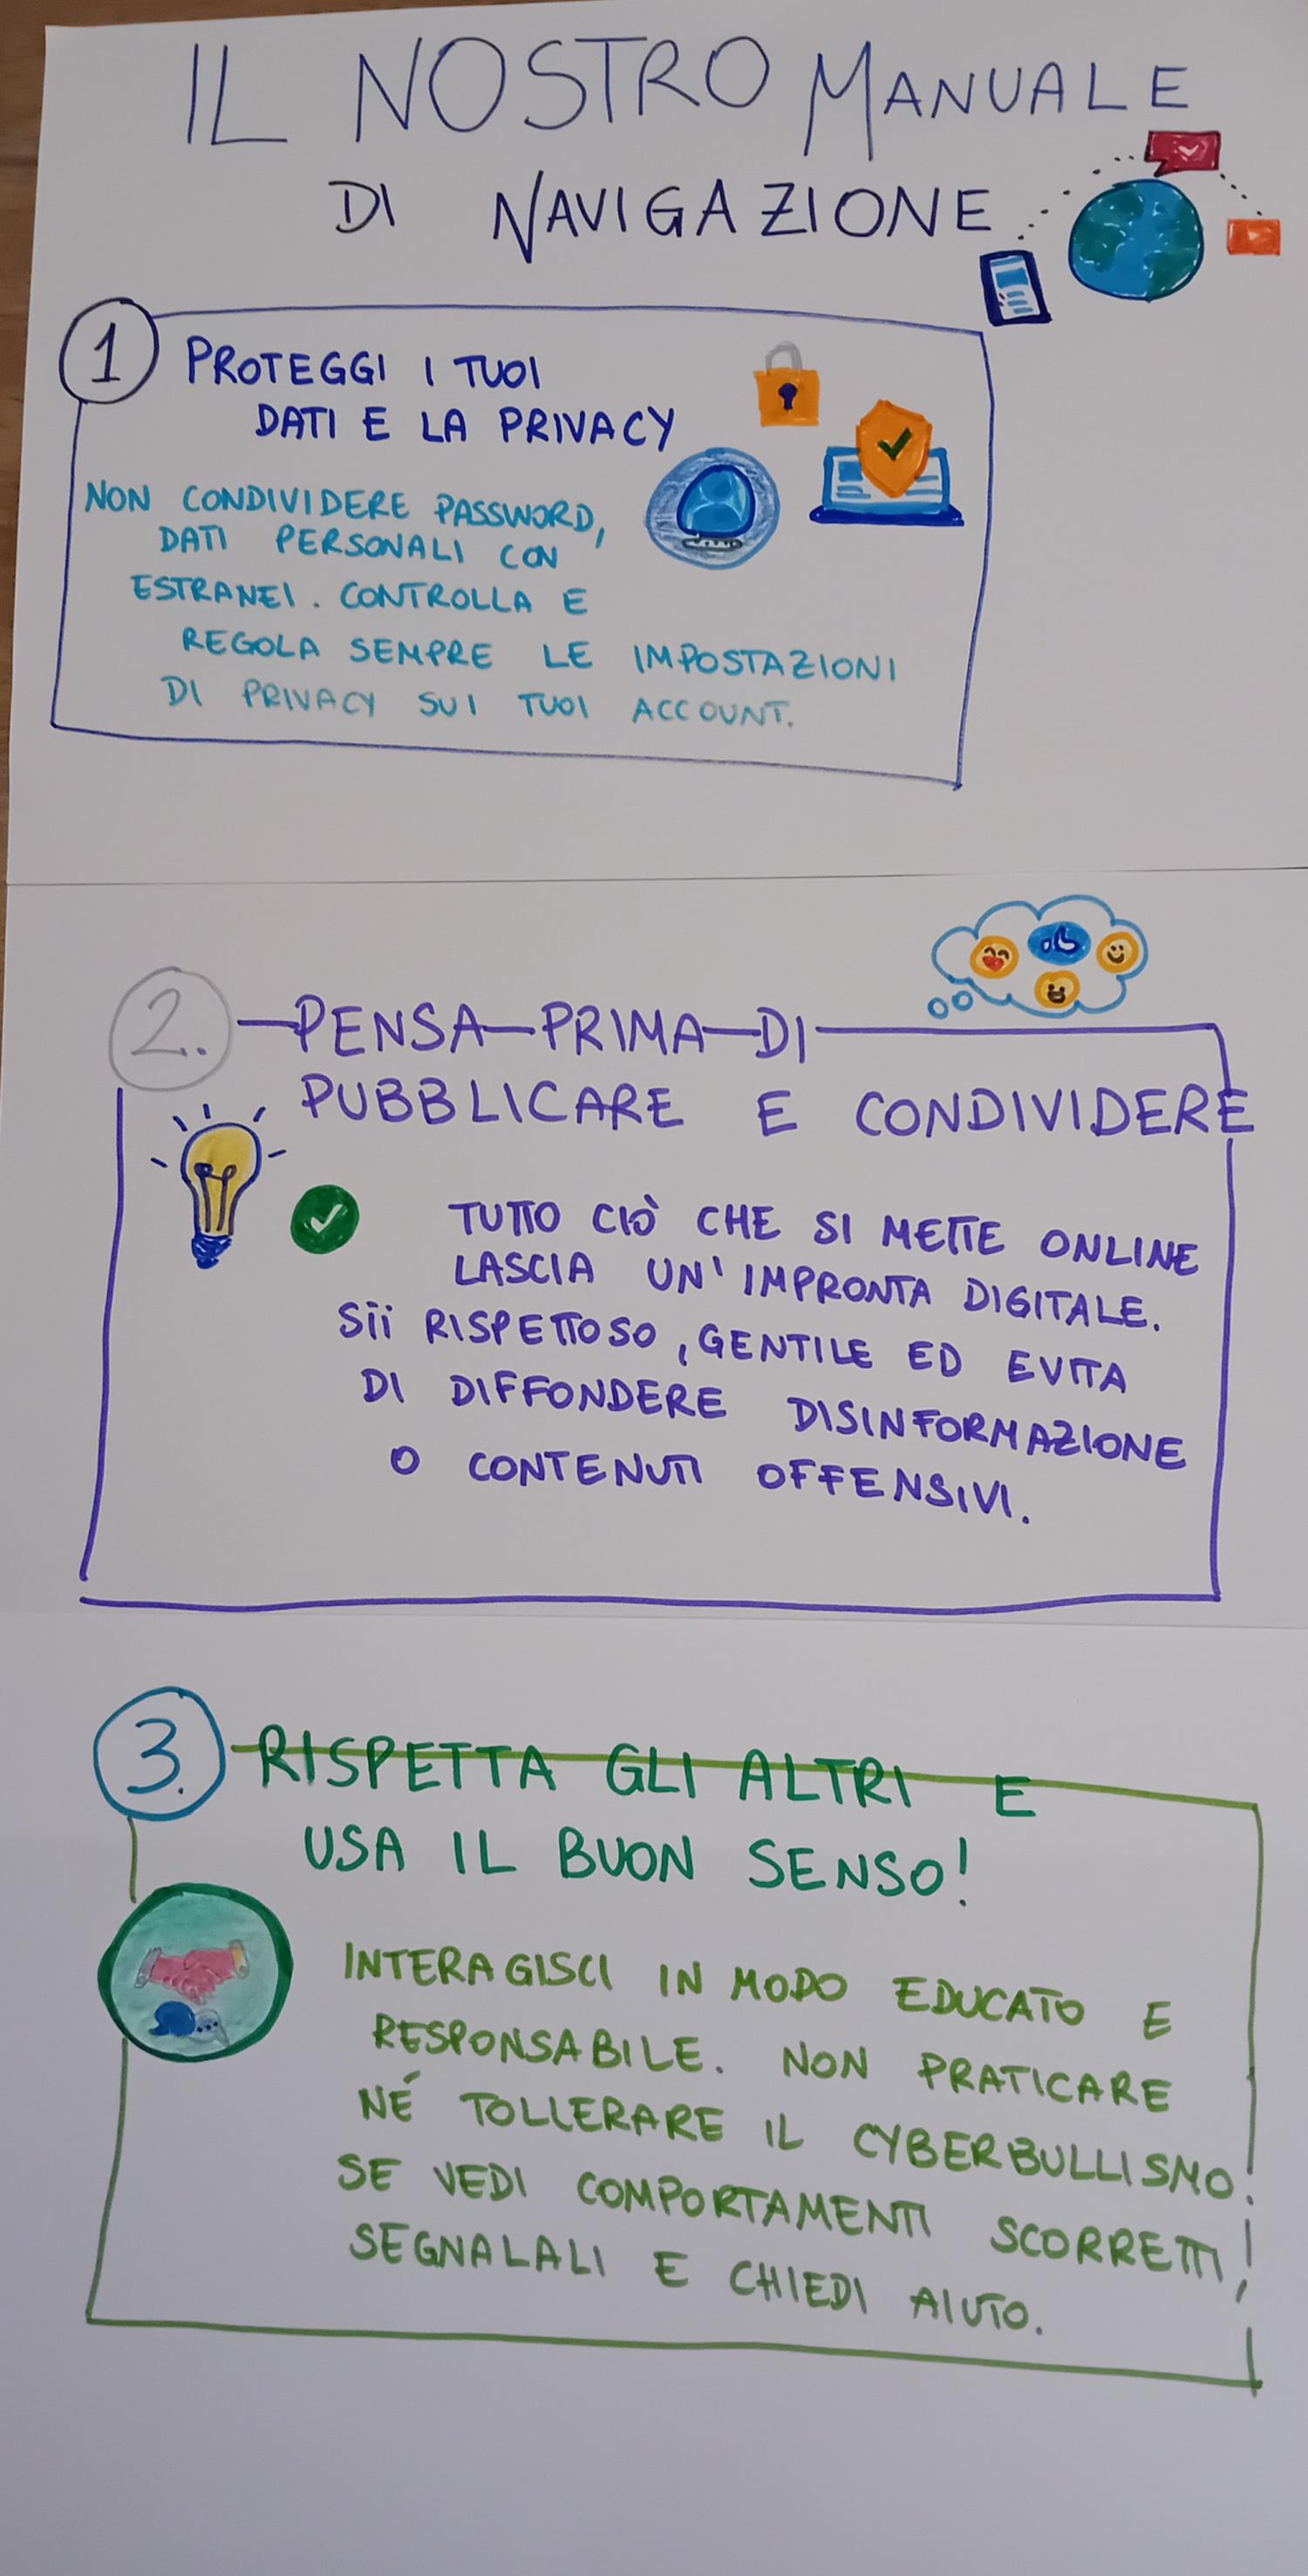 IL NOSTRO MANUALE
DI NAVIGAZIONE
1 PROTEGGI I TUOI
DATI E LA PRIVACY
NON CONDIVIDERE PASSWORD,
DATI PERSONALI CON
ESTRANEI. CONTROLLA E
REGOLA SEMPRE LE IMPOSTAZIONI
DI PRIVACY SUI TUOI ACCOUNT.
2. PENSA PRIMA DI
PUBBLICARE E CONDIVIDERE
TUTTO CIÒ CHE SI METTE ONLINE
LASCIA UN'IMPRONTA DIGITALE.
Sii RISPETTOSO, GENTILE ED EVITA
DI DIFFONDERE DISINFORMAZIONE
O CONTENUTI OFFENSIVI.
3. RISPETTA GLI ALTRI E
USA IL BUON SENSO!
INTERAGISCI IN MODO EDUCATO E
RESPONSABILE. NON PRATICARE
NÉ TOLLERARE IL CYBERBULLISMO.
SE VEDI COMPORTAMENTI SCORRETTI,
SEGNALALI E CHIEDI AIUTO.